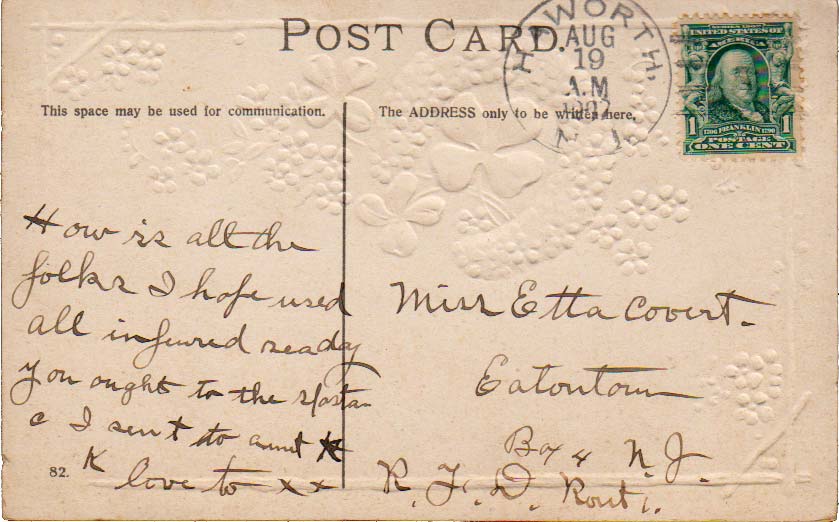 POST CARD.
HAWORTH,
AUG
19
A.M
N. J.
SERIES 1902
UNITED STATES OF
AMERICA
1 1706 FRANKLIN 1790 1
POSTAGE
ONE CENT
This space may be used for communication.
The ADDRESS only to be written here.
How is all the
folks I hope
all
you ought to the
c I sent to aunt K
K love to x x
82.
Miss Etta Covert.
Eatontown
Box 4 N. J.
R. F. D. Rout 1.